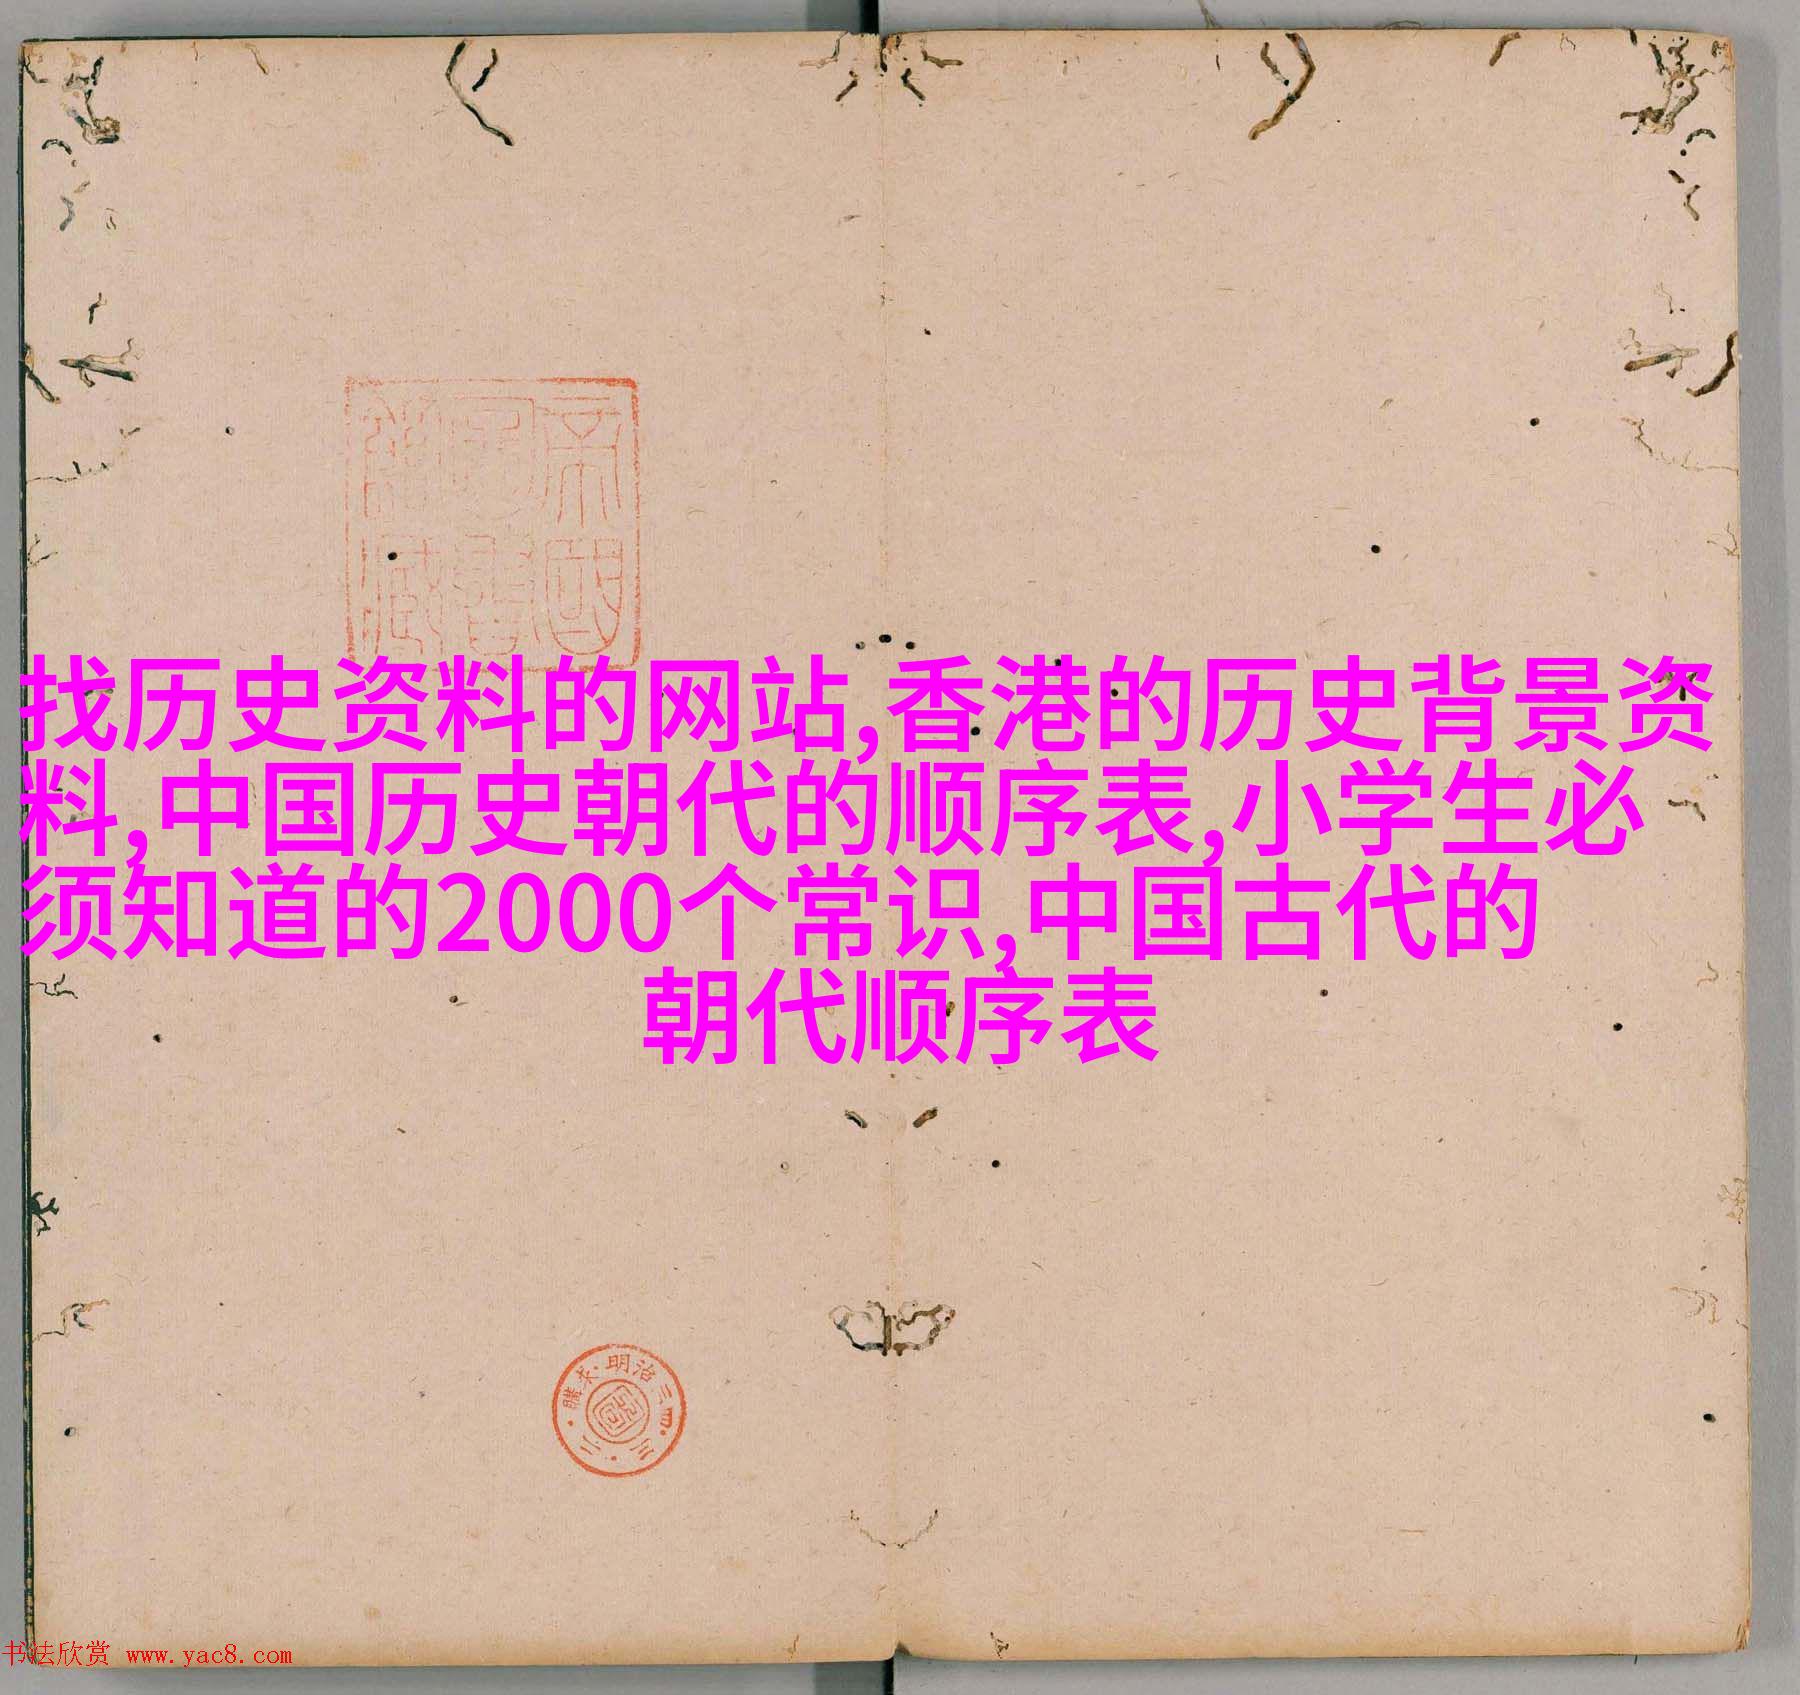 帝国
图书
馆藏
找历史资料的网站,香港的历史背景资
料,中国历史朝代的顺序表,小学生必
须知道的2000个常识,中国古代的
朝代顺序表
明治三四·三·二·購求·
书法欣赏 www.yac8.com